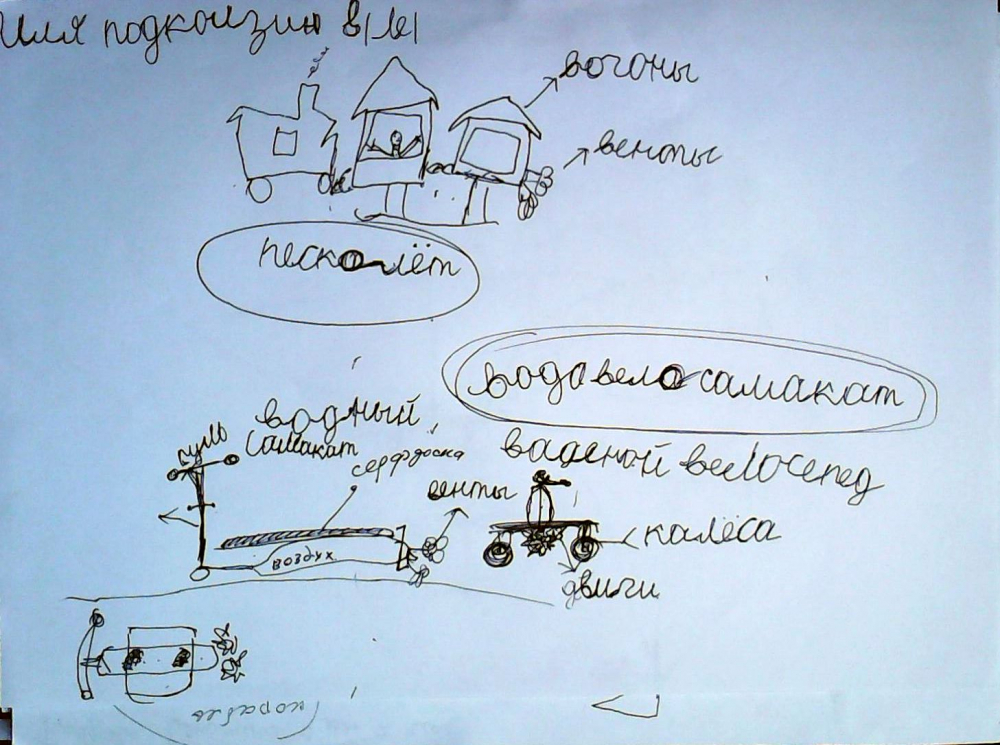 Иля подкользин
вогоны
венты
песколёт
водавелосамакат
водный
самакат
руль
серфдоска
венты
воздух
ваденой велосепед
калёса
двиги
корабль